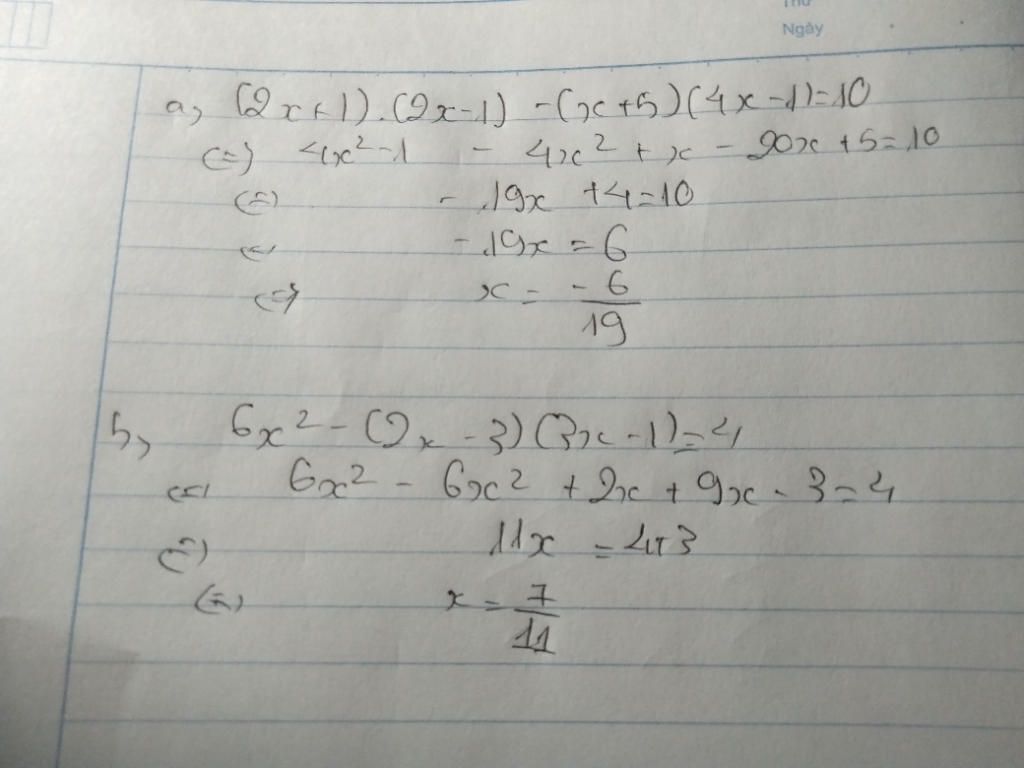 Thứ
Ngày
a, (2x+1).(2x-1) -(x+5)(4x-1)=10
(=) 4x²-1 - 4x² + x - 20x +5=10
(=) - 19x +4=10
(= -19x = 6
(=) x = -6/19
b, 6x² - (2x - 3)(3x -1)=4
(=) 6x² - 6x² + 2x + 9x - 3 = 4
(=) 11x = 4+3
(=) x = 7/11